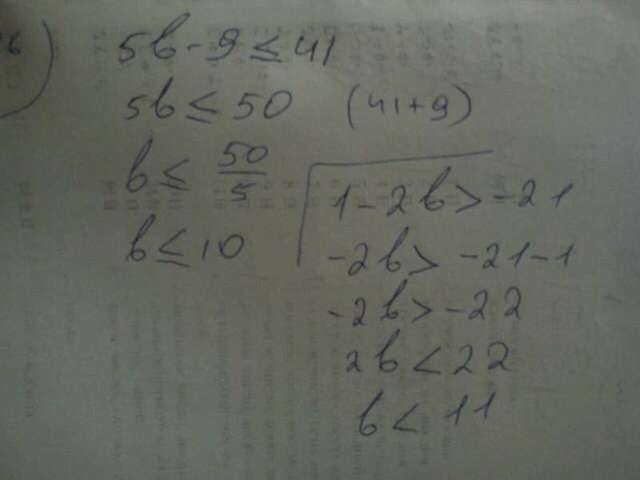 5b - 9 ≤ 41
5b ≤ 50 (41+9)
b ≤ 50/5
b ≤ 10
1 - 2b > -21
-2b > -21-1
-2b > -22
2b < 22
b < 11